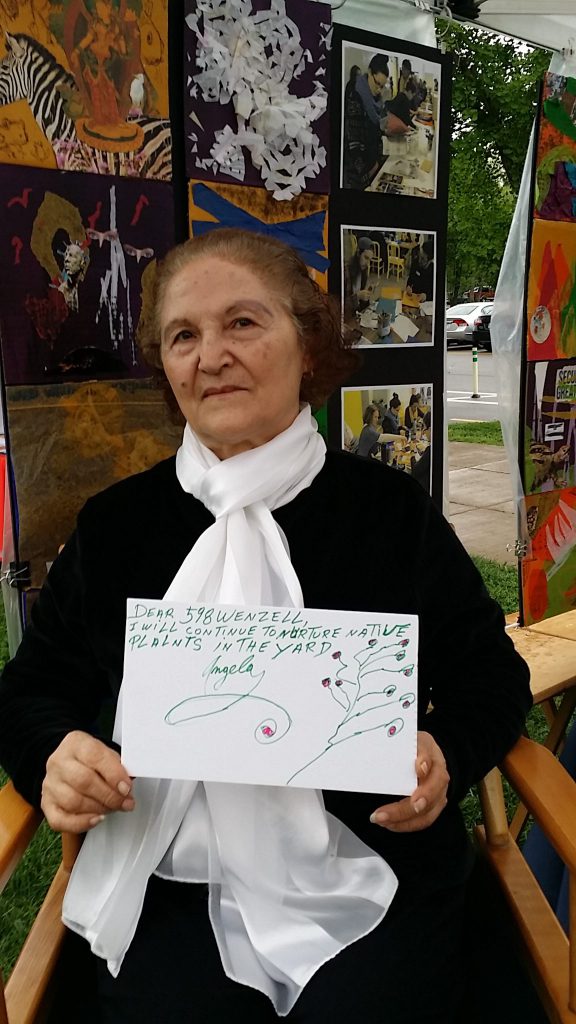 DEAR 598 WENZELL,
I WILL CONTINUE TO NURTURE NATIVE
PLAINTS IN THE YARD
Angela